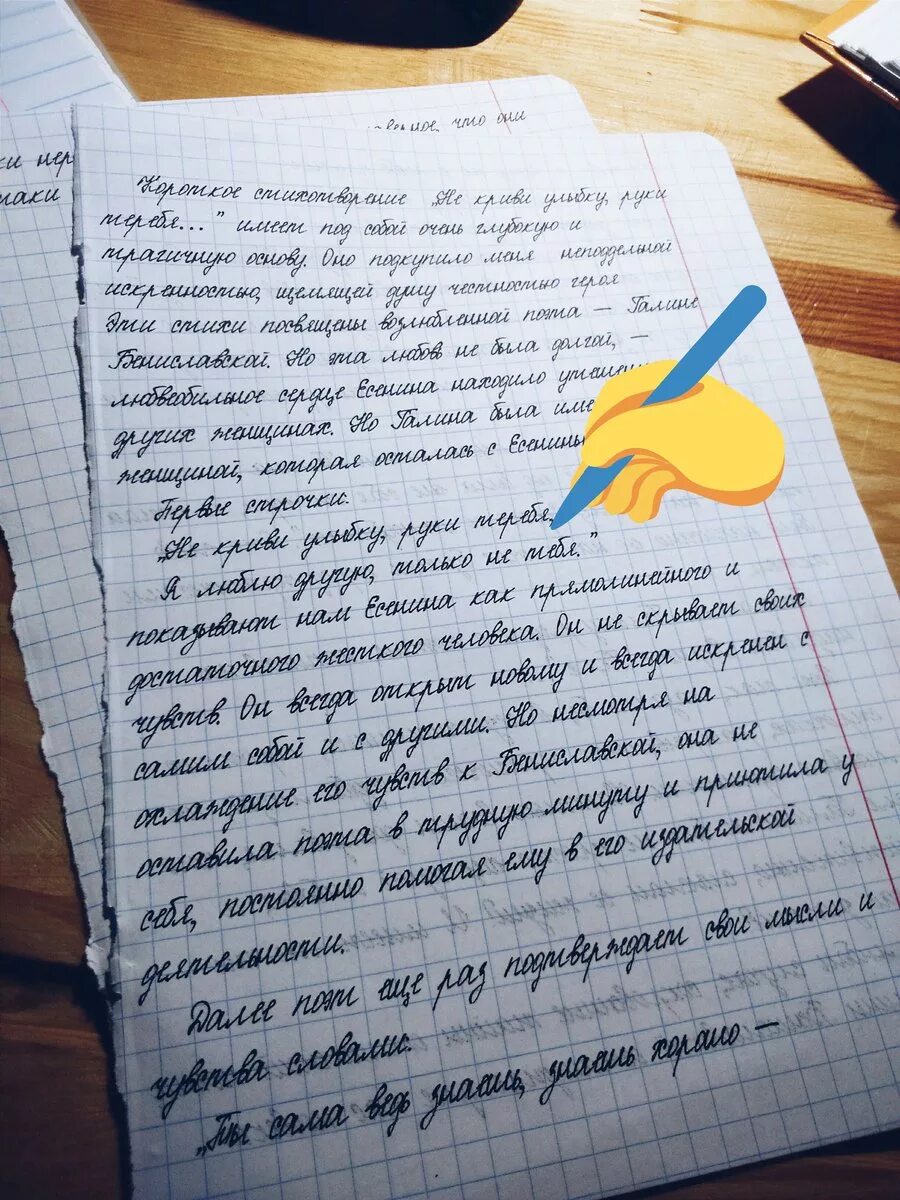 что они
Короткое стихотворение „Не криви улыбку, руки
теребя..." имеет под собой очень глубокую и
трагичную основу. Оно подкупило меня неподдельной
искренностью, щемящей душу честностью героя
Эти стихи посвящены возлюбленной поэта — Галине
Бениславской. Но эта любовь не была долгой, —
любвеобильное сердце Есенина находило
других женщинах. Но Галина была
женщиной, которая осталась с
Первые строчки.
„Не криви улыбку, руки теребя,
Я люблю другую, только не тебя."
показывают нам Есенина как прямолинейного и
достаточного жесткого человека. Он не скрывает своих
чувств. Он всегда открыт новому и всегда искренен с
самим собой и с другими. Но несмотря на
охлаждение его чувств к Бениславской, она не
оставила поэта в трудную минуту и приютила у
себя, постоянно помогая ему в его издательской
деятельности.
Далее поэт еще раз подтверждает свои мысли и
чувства словами.
„Ты сама ведь знаешь, знаешь хорошо —